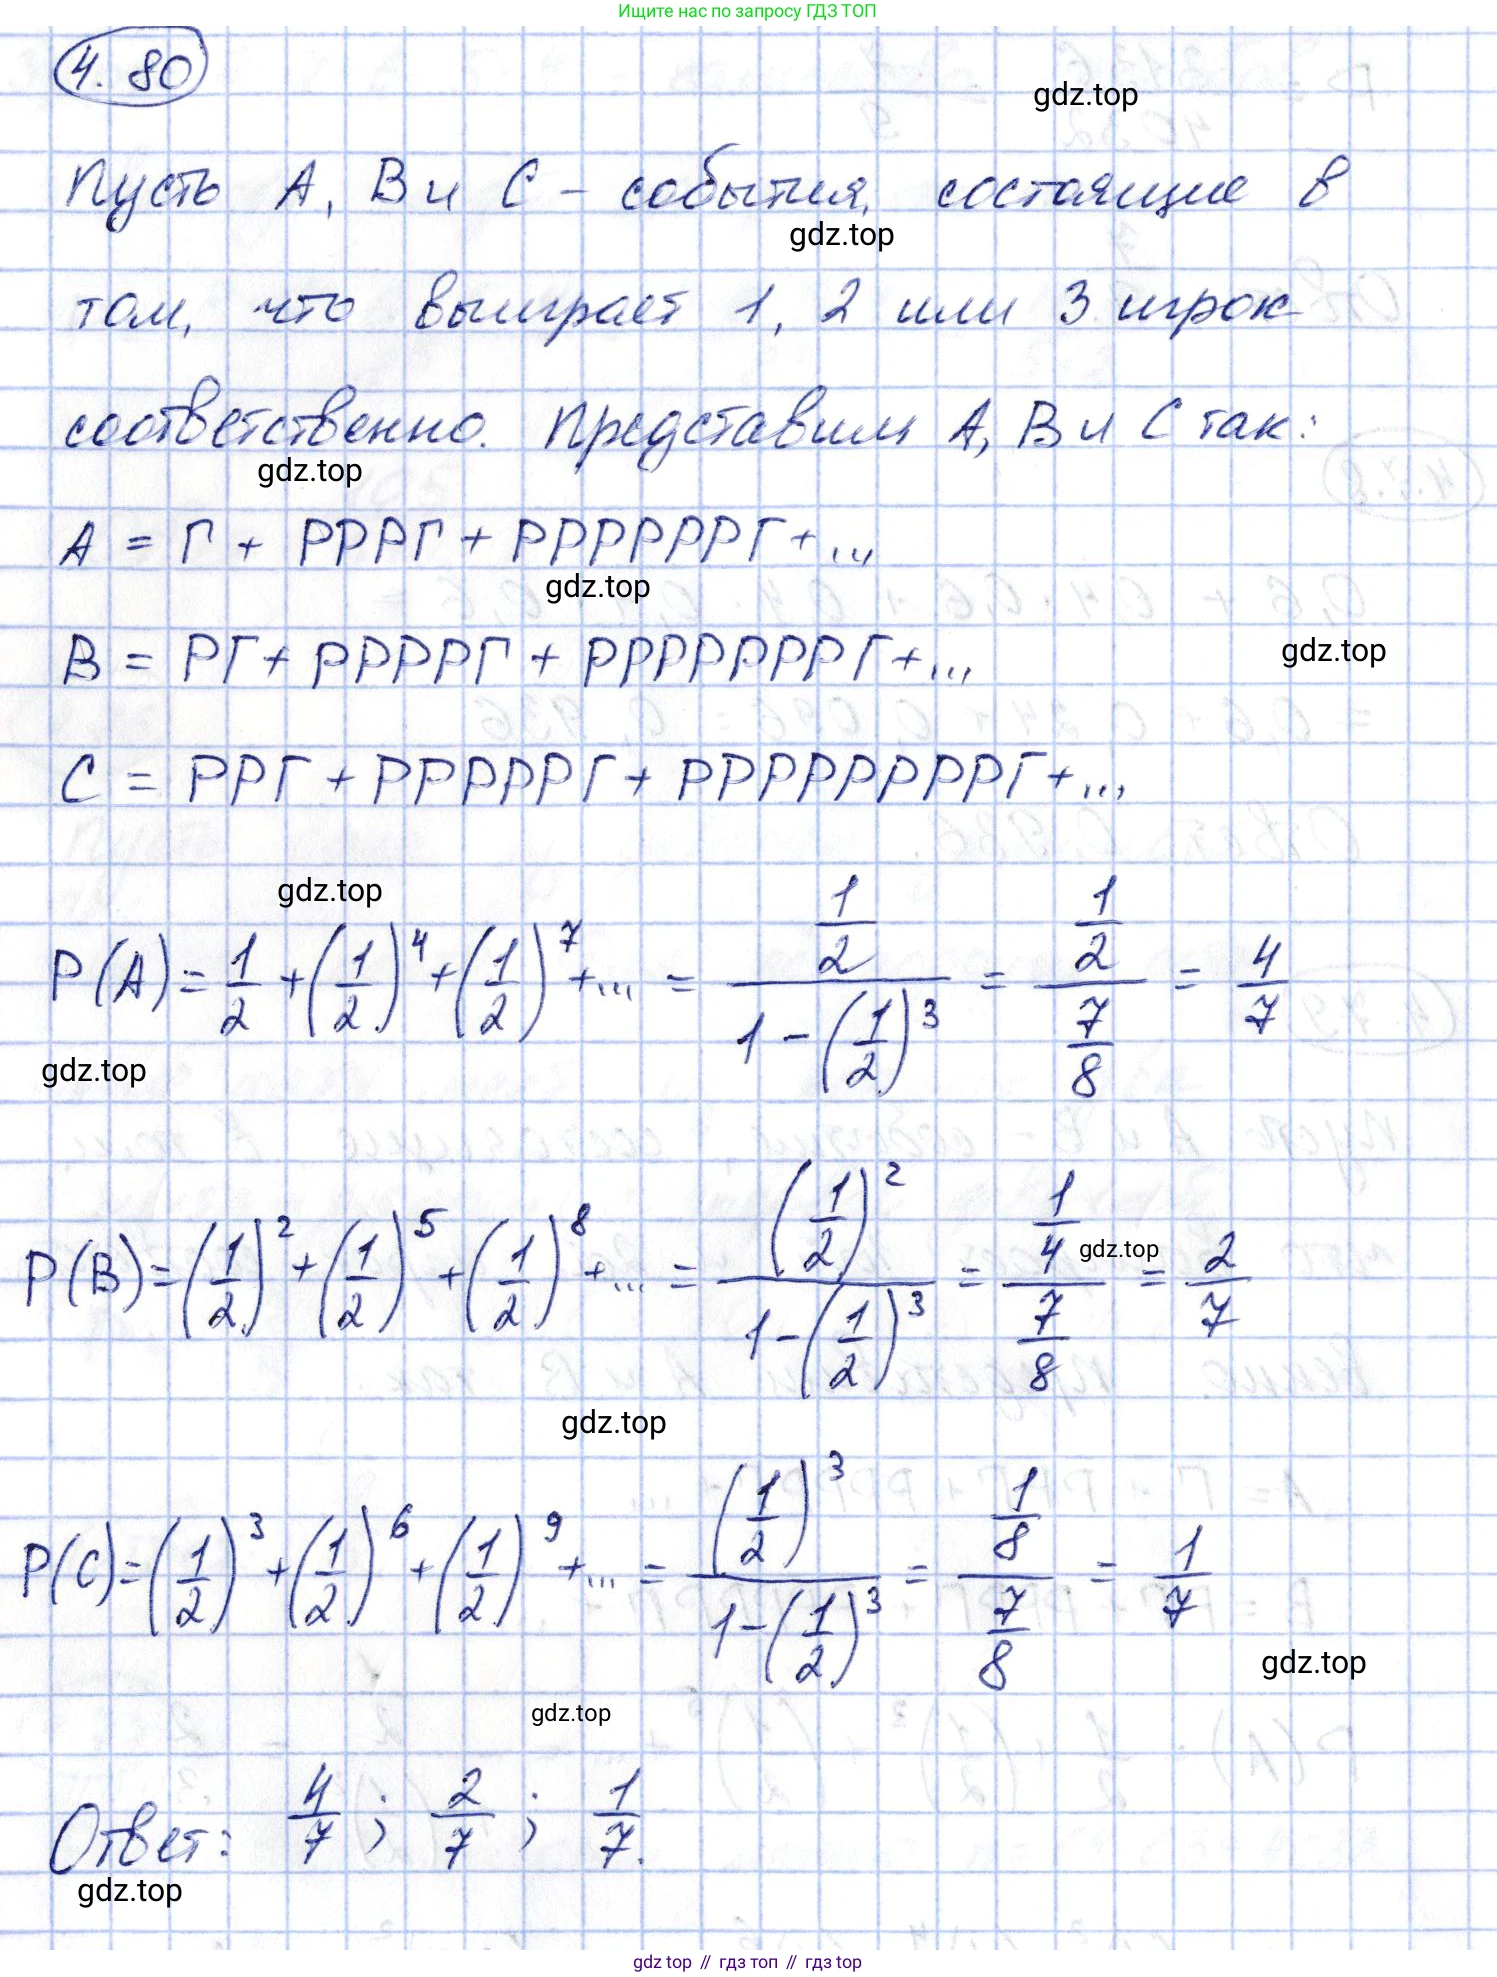 Ищите нас по запросу ГДЗ ТОП
4.80
gdz.top
Пусть А, В и С – события, состоящие в
gdz.top
том, что выиграет 1, 2 или 3 игрок
соответственно. Представим А, В и С так:
gdz.top
А = Г + РРРГ + РРРРРРГ + ...
gdz.top
В = РГ + РРРРГ + РРРРРРРГ + ...
gdz.top
С = РРГ + РРРРРГ + РРРРРРРРГ + ...
gdz.top
P(A) = 1/2 + (1/2)^4 + (1/2)^7 + ... = (1/2)/(1 - (1/2)^3) = (1/2)/(7/8) = 4/7
gdz.top
P(B) = (1/2)^2 + (1/2)^5 + (1/2)^8 + ... = ((1/2)^2)/(1 - (1/2)^3) = (1/4)/(7/8) = 2/7
gdz.top
gdz.top
P(C) = (1/2)^3 + (1/2)^6 + (1/2)^9 + ... = ((1/2)^3)/(1 - (1/2)^3) = (1/8)/(7/8) = 1/7
gdz.top
gdz.top
Ответ: 4/7 ; 2/7 ; 1/7.
gdz.top
gdz top // гдз топ // гдз top